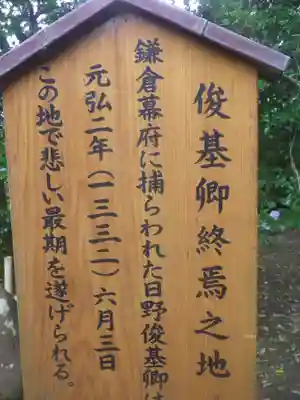 俊基卿終焉之地
鎌倉幕府に捕らわれた日野俊基卿は
元弘二年（一三三二）六月三日
この地で悲しい最期を遂げられる。